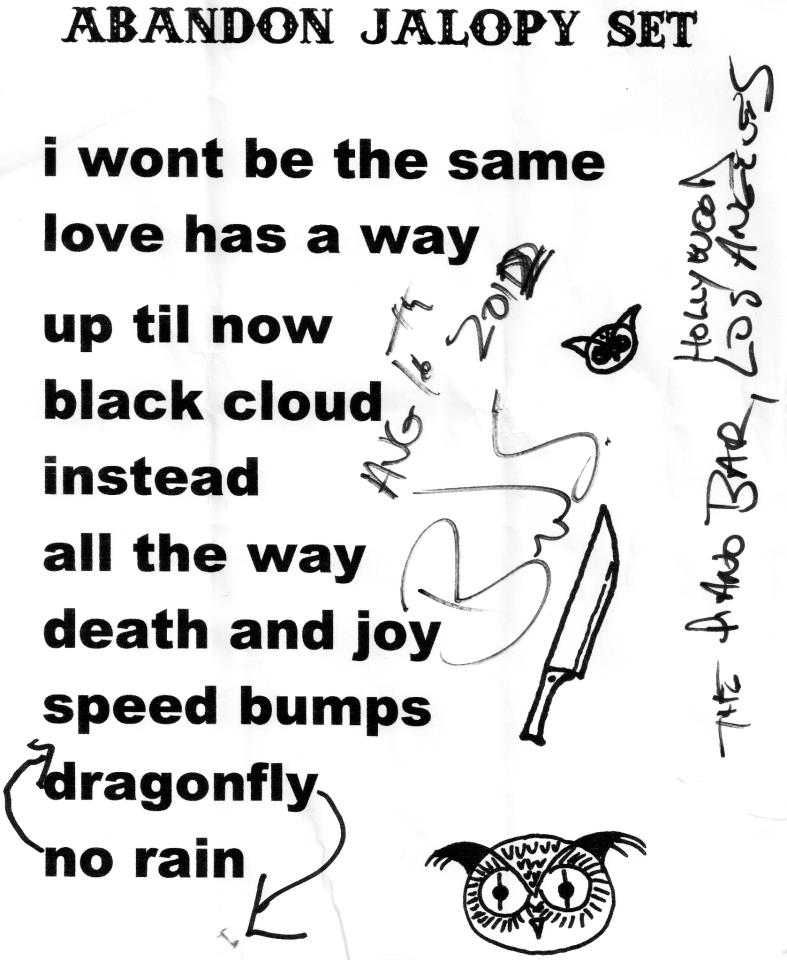 ABANDON JALOPY SET
i wont be the same
love has a way
up til now
black cloud
instead
all the way
death and joy
speed bumps
dragonfly
no rain
AUG 16th
THE PIANO BAR,
HOLLYWOOD
LOS ANGELES